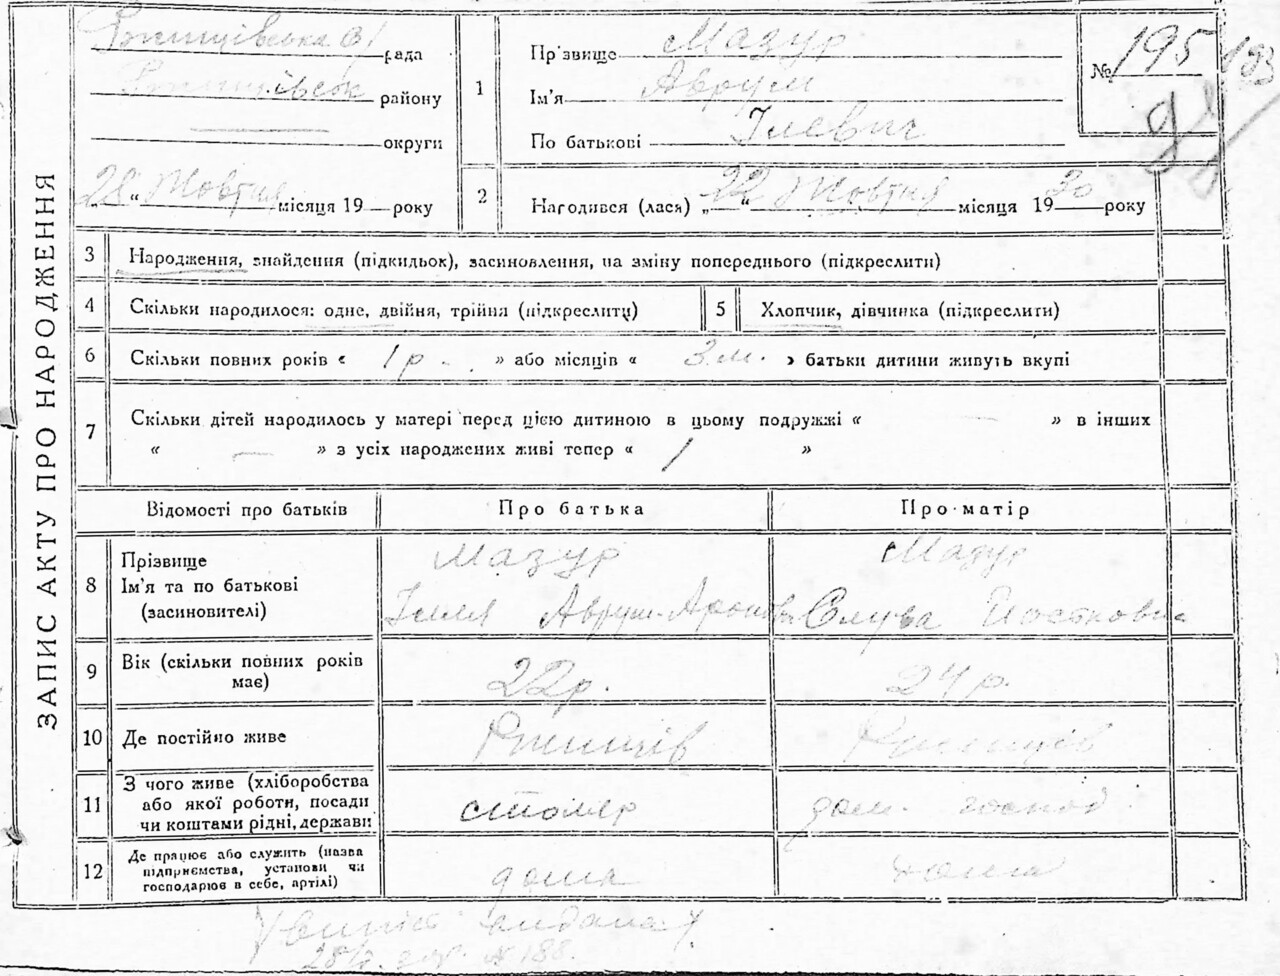 ЗАПИС АКТУ ПРО НАРОДЖЕННЯ
Ржищівська рада
Ржищівськ району
округи
„28“ Жовтня місяця 19 року
1 Прізвище Мазур
Ім'я Аврум
По батькові Ілевич
№ 195 193
98
2 Народився (лася) „22“ Жовтня місяця 1930 року
3 Народження, знайдення (підкидьок), засиновлення, на зміну попереднього (підкреслити)
4 Скільки народилося: одне, двійня, трійня (підкреслити)
5 Хлопчик, дівчинка (підкреслити)
6 Скільки повних років « 1 р. » або місяців « 3 м. » батьки дитини живуть вкупі
7 Скільки дітей народилось у матері перед цією дитиною в цьому подружжі « — » в інших
« — » з усіх народжених живі тепер « 1 »
Відомості про батьків Про батька Про матір
8 Прізвище
Ім'я та по батькові
(засиновителі)
Мазур
Ілля Аврум-Аронов
Мазур
Слува
9 Вік (скільки повних років
має)
22 р.
24 р.
10 Де постійно живе Ржищів Ржищів
11 З чого живе (хліборобства
або якої роботи, посади
чи коштами рідні, держави
столяр
дом. господ
12 Де працює або служить (назва
підприємства, установи чи
господарює в себе, артілі)
дома
дома
видана
№ 188.